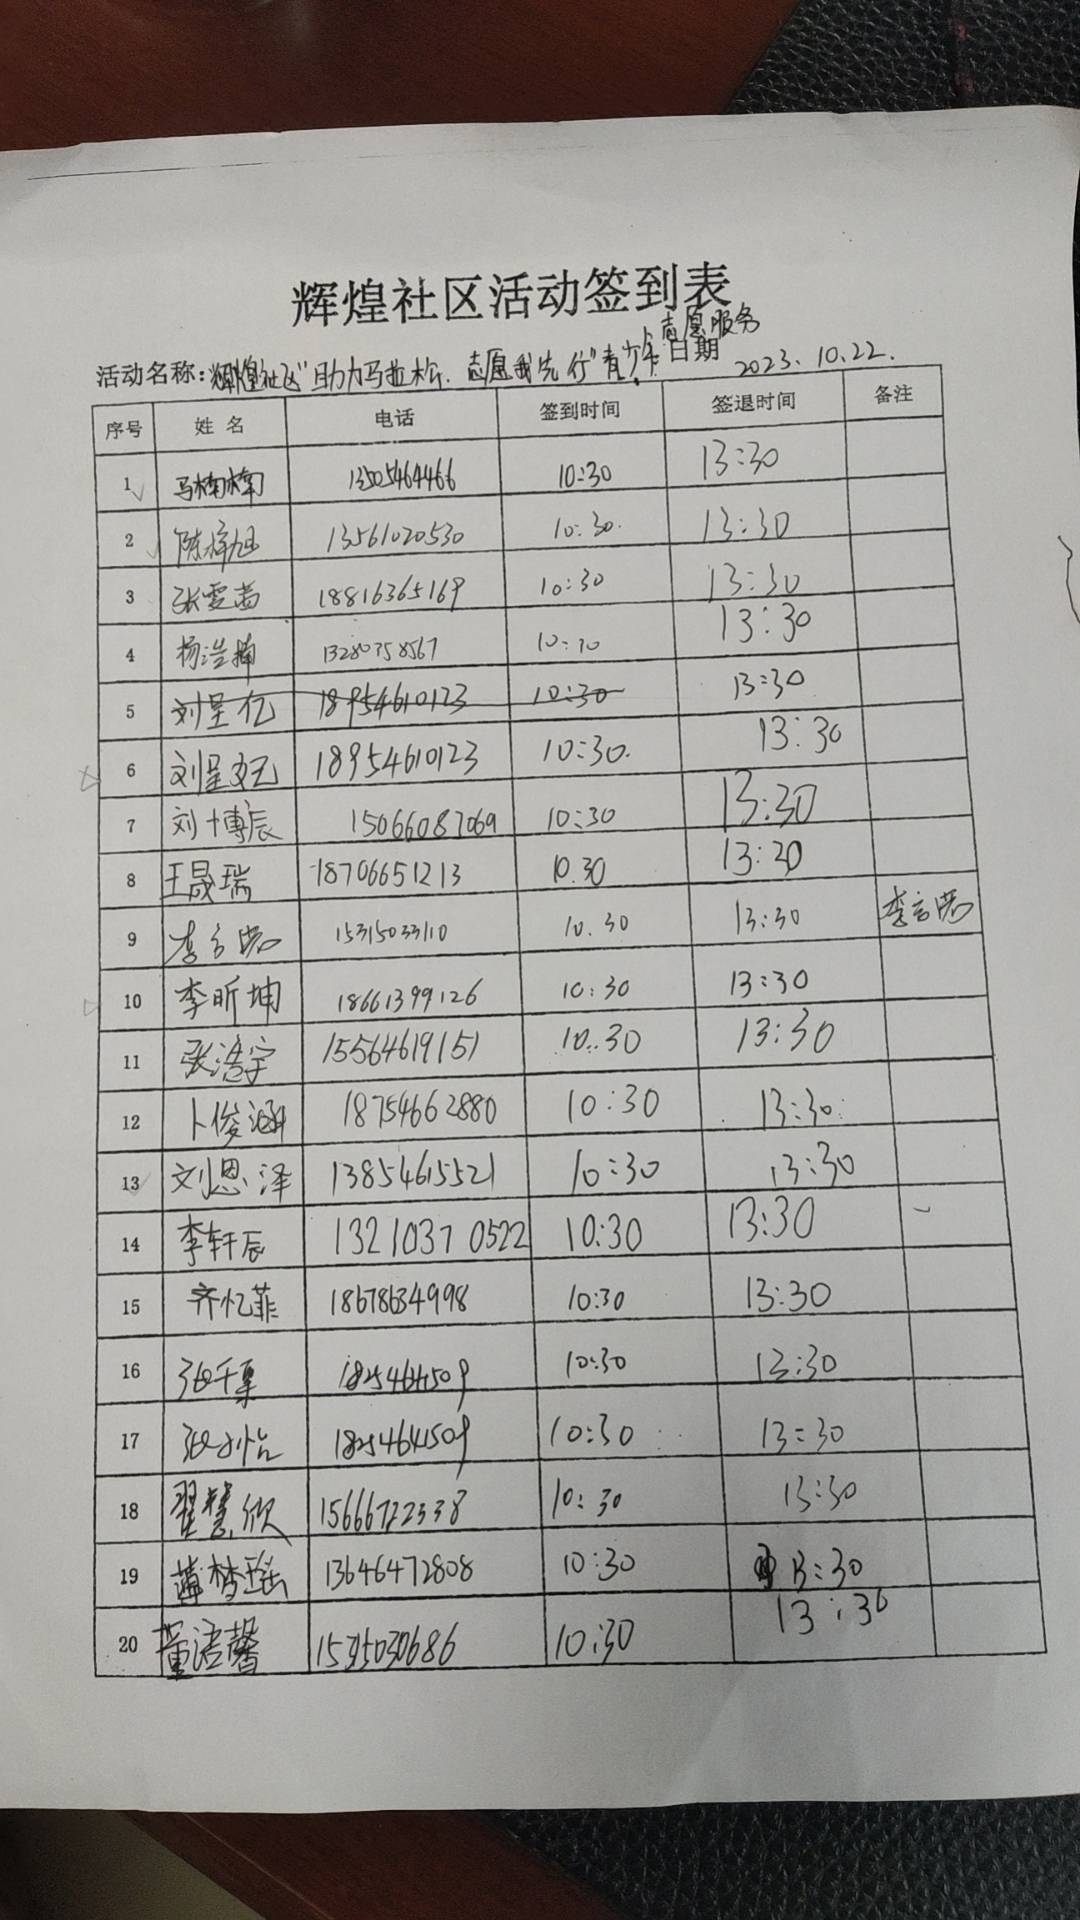 辉煌社区活动签到表
活动名称：辉煌社区"助力马拉松，志愿我先行"青少年志愿服务 日期 2023.10.22.
序号 姓名 电话 签到时间 签退时间 备注
1 马楠楠 13505464466 10:30 13:30
2 陈梓旭 13561020530 10:30. 13:30
3 张雯茜 18816365169 10:30 13:30
4 杨浩楠 13280358567 10:30 13:30
5 刘呈亿 18954610123 10:30 13:30
6 刘呈 18954610123 10:30. 13:30
7 刘博辰 15066087069 10:30 13:30
8 王晟瑞 18706651213 10.30 13:30
9 李 15315033110 10.30 13:30 李
10 李昕坤 18661399126 10:30 13:30
11 张浩宇 15564619151 10:30 13:30
12 卜俊涵 18754662880 10:30 13:30
13 刘恩泽 13854615521 10:30 13:30
14 李轩辰 13210370522 10:30 13:30
15 齐忆菲 18678634998 10:30 13:30
16 张千 18254644509 10:30 13:30
17 张怡 18254641509 10:30 13:30
18 翟慧欣 15666722338 10:30 13:30
19 梦瑶 13646472808 10:30 13:30
20 董语馨 10:30 13:30